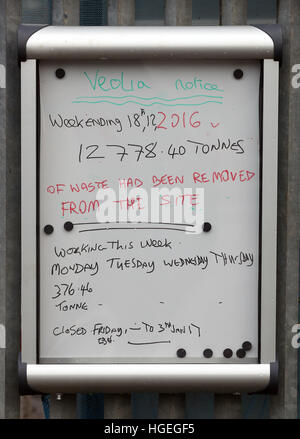 Veolia notice
Weekending 18th, 12, 2016
12778.40 TONNES
OF WASTE HAD BEEN REMOVED
FROM THI SITE
WORKING THIS WEEK
MONDAY TUESDAY WEDNESDAY THURSDAY
376.46
TONNE - - -
CLOSED FRIDAY, - TO 3RD JAN 17
a alamy stock photo
HGEGF5
www.alamy.com